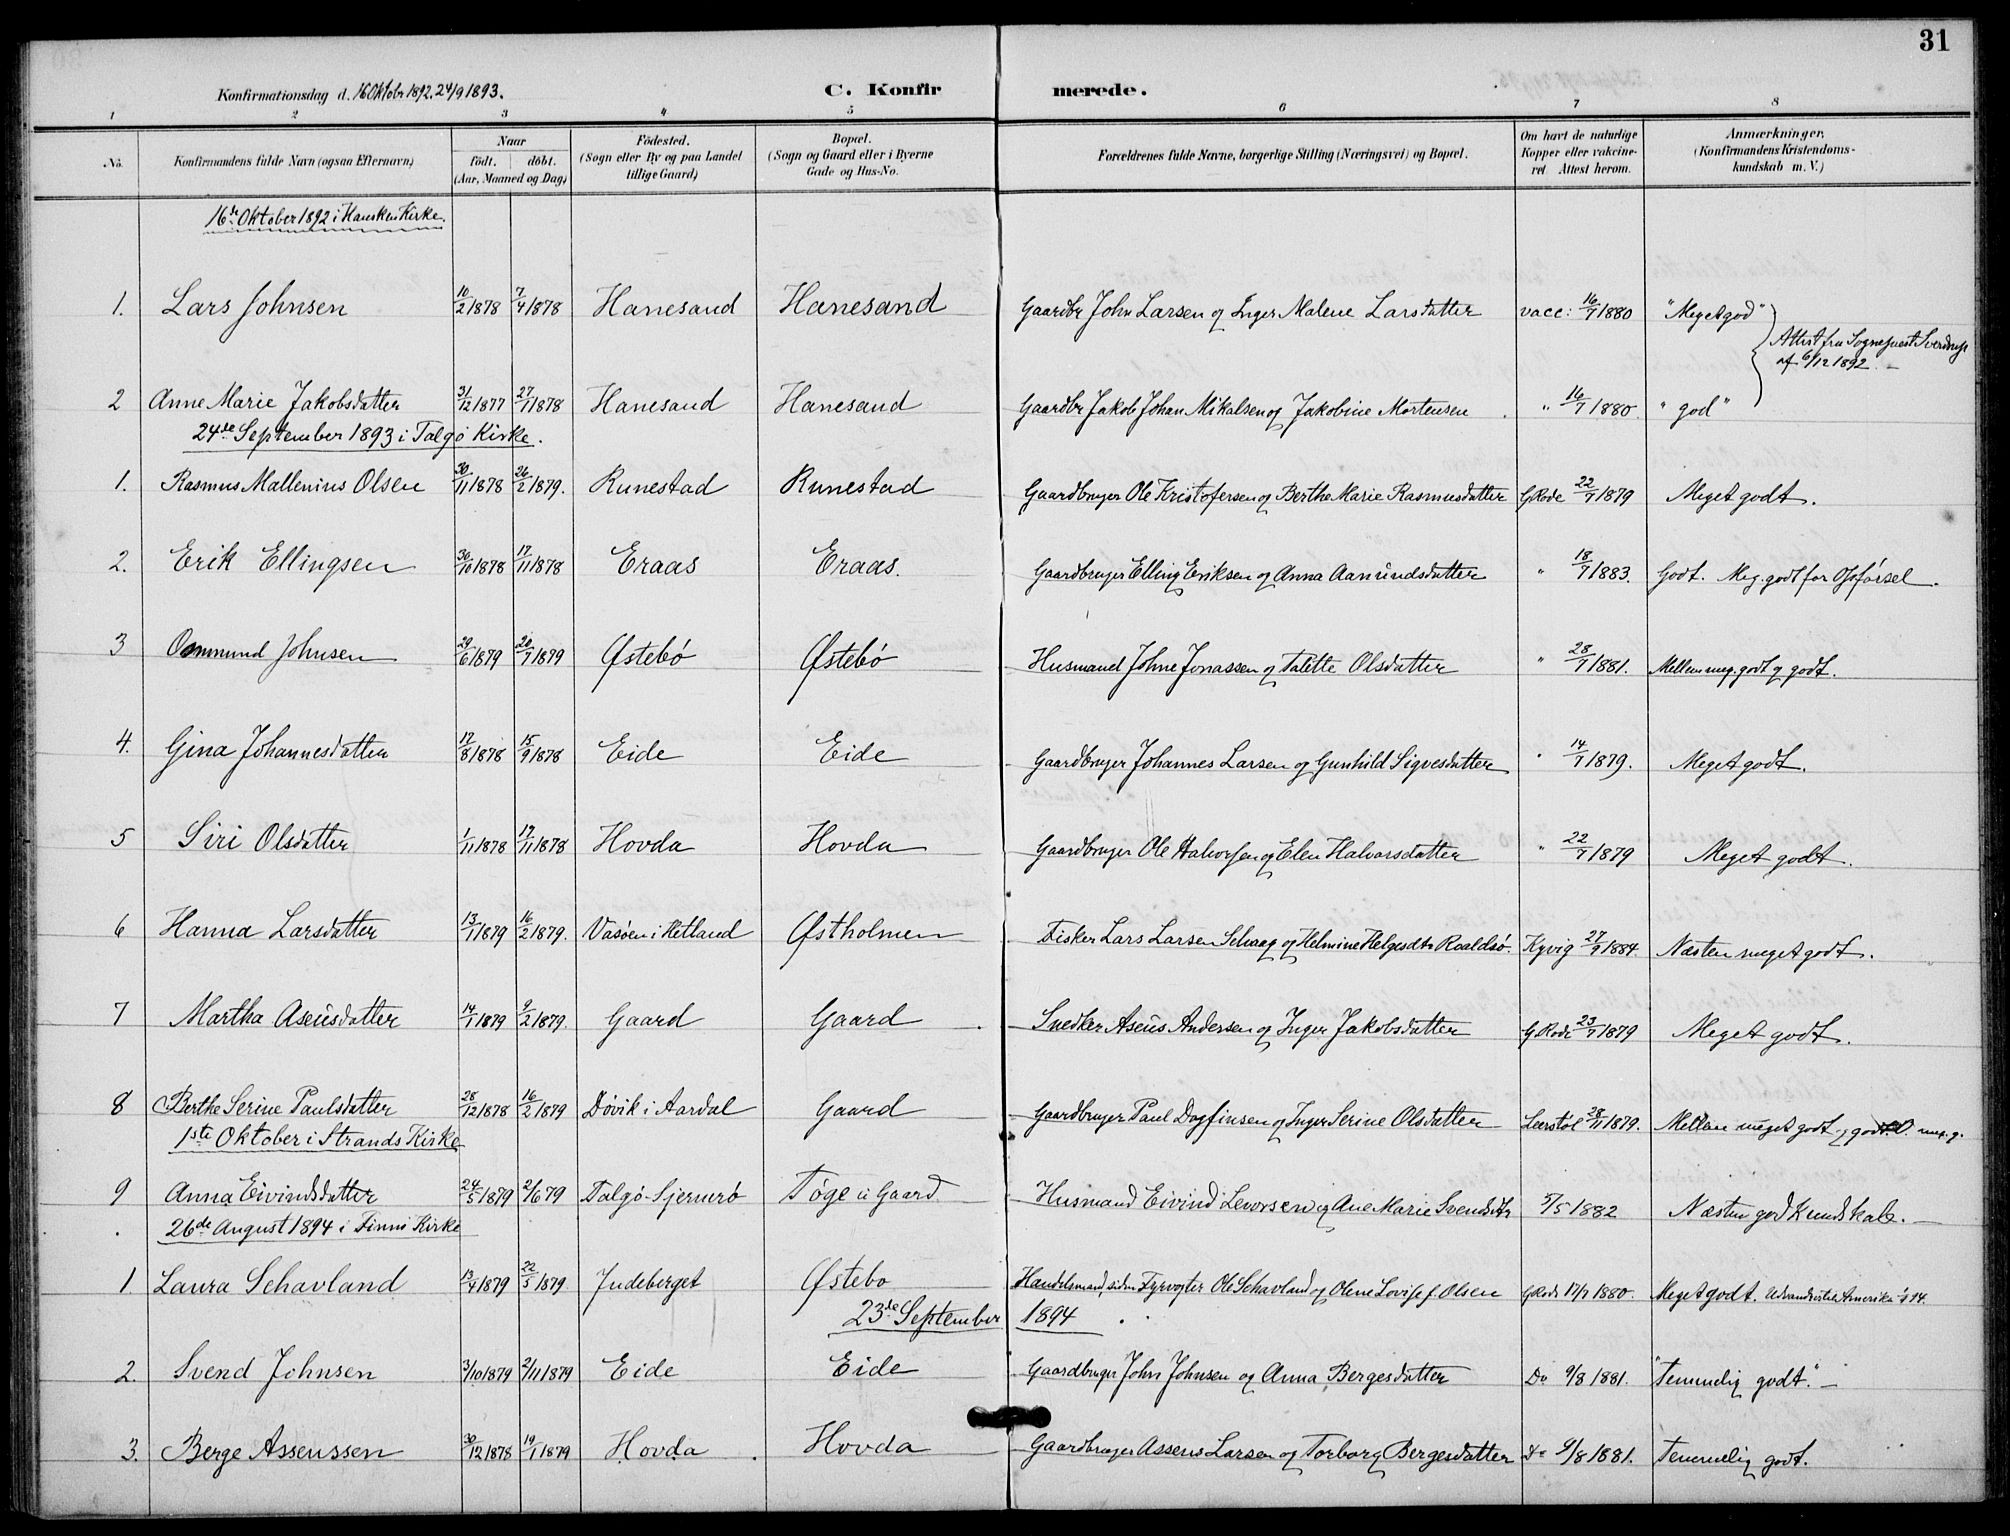 31
Konfirmationsdag d. 16 Oktobr 1892. 24/9 1893.
C. Konfirmerede.
1 2 3 4 5 6 7 8
No. Konfirmandens fulde Navn (ogsaa Efternavn) Naar födt. döbt. (Aar, Maaned og Dag) Födested. (Sogn eller By og paa Landet tillige Gaard) Bopæl. (Sogn og Gaard eller i Byerne Gade og Hus-No. Forældrenes fulde Navne, borgerlige Stilling (Næringsvei) og Bopæl. Om havt de naturlige Kopper eller vakcineret. Attest herom. Anmærkninger, (Konfirmandens Kristendomskundskab m. V.)
16de Oktober 1892 i Hausken Kirke.
1. Lars Johnsen 10/2 1878 7/4 1878 Hanesand Hanesand Gaardbr John Larsen og Inger Malene Larsdatter vacc: 16/7 1880 "Meget god"
Attest fra Sogneprest Sverdrup
af 6/12 1892. –
2 Anne Marie Jakobsdatter 31/12 1877 27/1 1878 Hanesand Hanesand Gaardbr Jakob Johan Mikalsen og Jakobine Mortensen " 16/7 1880. "god"
24de September 1893 i Talgø Kirke.
1. Rasmus Mallenius Olsen 30/11 1878 26/2 1879. Runestad Runestad Gaardbruger Ole Kristofersen og Berthe Marie Rasmusdatter G Rode 22/7 1879 Meget godt.
2. Erik Ellingsen 30/10 1878 17/11 1878 Eraas Eraas. Gaardbruger Elling Eriksen og Anna Aamundsdatter " 18/7 1883. Godt. Meg. godt for Opførsel.
3 Osmund Johnsen 29/6 1879 20/7 1879 Østebø Østebø Husmand Johne Jonassen og Talette Olsdatter " 28/7 1881. Mellem meg. godt og godt.
4. Gina Johannesdatter 17/8 1878 15/9 1878 Eide Eide Gaardbruger Johannes Larsen og Gunhild Sigvesdatter " 14/7 1879. Meget godt.
5 Siri Olsdatter 1/11 1878 17/11 1878 Hovda Hovda Gaardbruger Ole Halvorsen og Elen Halvorsdatter " 22/7 1879 Meget godt.
6 Hanna Larsdatter 13/1 1879 16/2 1879. Vasøen i Hetland Østholmen Fisker Lars Larsen og Helmine Helgesdtr Roaldsø. Kyvig 27/9 1884. Næsten meget godt.
7 Martha Aseüsdatter 14/1 1879 9/2 1879. Gaard Gaard Snedker Aseüs Andersen og Inger Jakobsdatter G. Rode 23/7 1879 Meget godt.
8 Berthe Serine Paulsdatter 28/12 1878 16/2 1879 Døvik i Aardal Gaard Gaardbruger Paul Dagfinsen og Inger Serine Olsdatter 28/11 1879. Mellem meget godt og godt. meg. g.
1ste Oktober i Strands Kirke
9 Anna Eivindsdatter 24/5 1879 2/6 79 Talgø Sjernerø Tøge u Gaard Husmand Eivind Levorsen og Ane Marie Svendsdtr 5/5 1882 Næsten god Kundskab. –
26de August 1894 i Finnø Kirke
1. Laura Schavland 13/4 1879 22/5 1879. Judeberget Østebø Handelsmand, siden Fyrvogter Ole Schavland og Olene Lovise f. Olsen G Rode 17/7 1880. Meget godt. Udvandret til Amerika
23de September 1894
2. Svend Johnsen 3/10 1879 2/11 1879 Eide Eide Gaardbruger John Johnsen og Anna Bergesdatter Do 9/8 1881. "Temmelig godt." –
3. Berge Asseussen 30/12 1878 19/1 1879 Hovda Hovda Gaardbruger Asseus Larsen og Torborg Bergesdatter Do 9/8 1881. Temmelig godt.